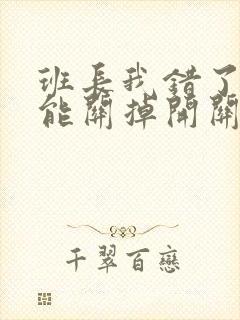 班長我錯了
能關掉開關
千翠百戀